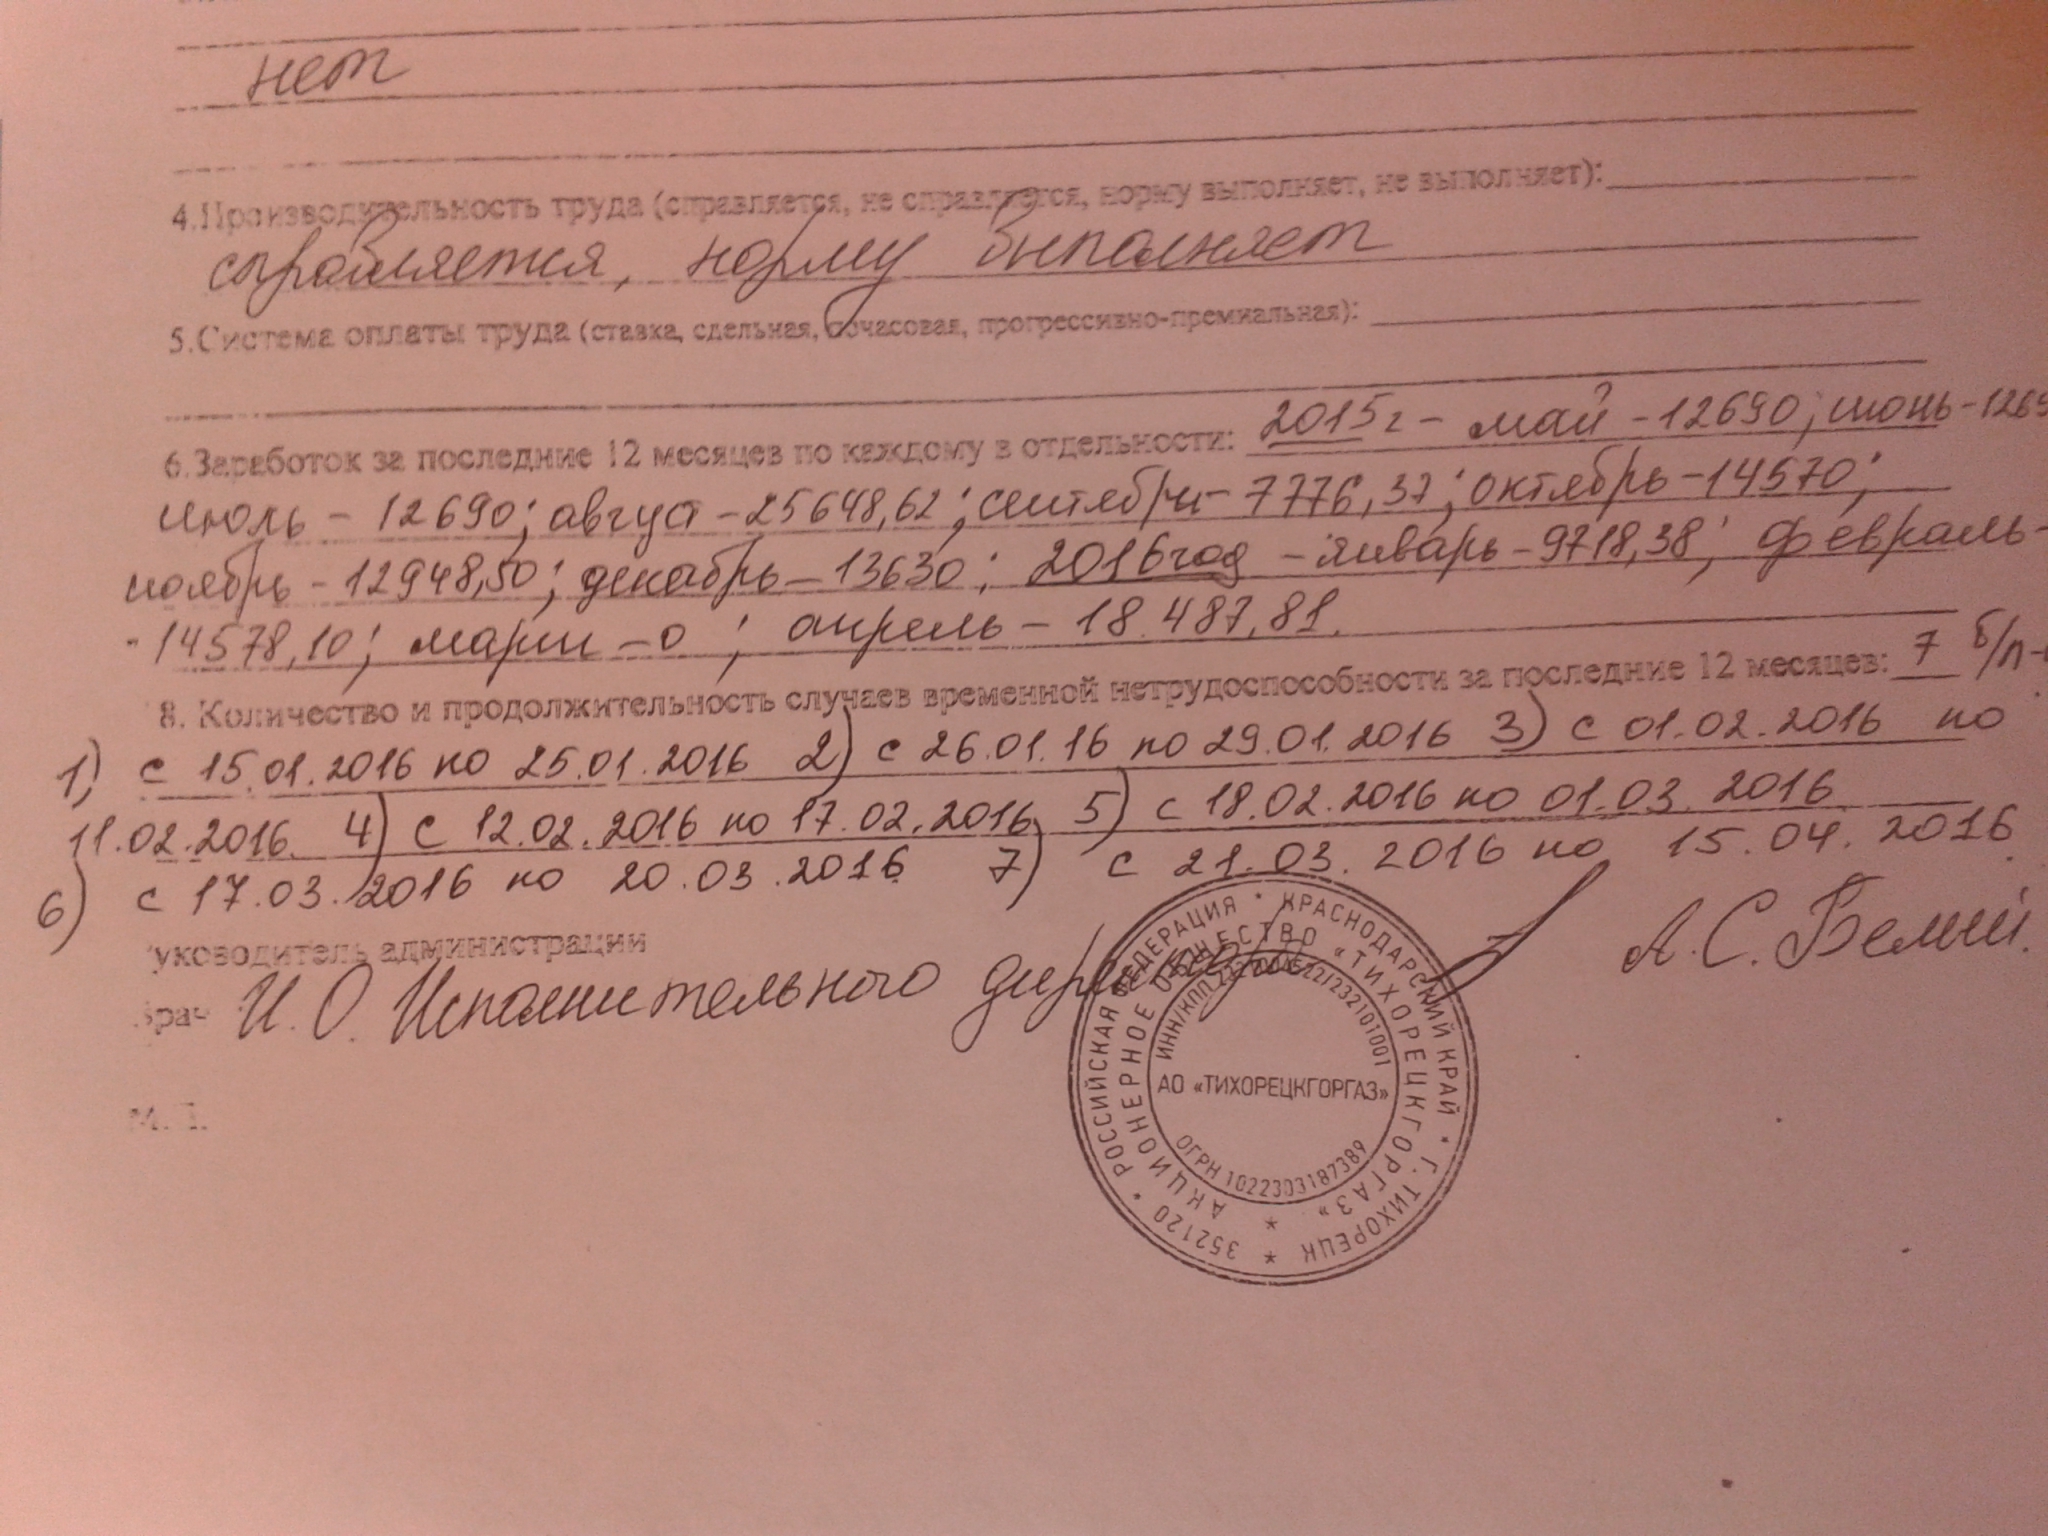 нет
4.Производительность труда (справляется, не справляется, норму выполняет, не выполняет):
справляется, норму выполняет
5.Система оплаты труда (ставка, сдельная, почасовая, прогрессивно-премиальная):
6.Заработок за последние 12 месяцев по каждому в отдельности: 2015г - май - 12690; июнь - 1269
июль - 12690; август - 25648,62; сентябрь - 7776,37; октябрь - 14570;
ноябрь - 12948,50; декабрь - 13630; 2016год - январь - 9718,38; февраль -
- 14578,10; март - 0 ; апрель - 18.487,81.
8. Количество и продолжительность случаев временной нетрудоспособности за последние 12 месяцев: 7 б/л-
1) с 15.01.2016 по 25.01.2016 2) с 26.01.16 по 29.01.2016 3) с 01.02.2016 по
11.02.2016. 4) с 12.02.2016 по 17.02.2016 5) с 18.02.2016 по 01.03.2016
6) с 17.03.2016 по 20.03.2016 7) с 21.03.2016 по 15.04.2016
уководитель администрации
Врач И.О. Исполнительного директора А.С. Белый.
М.П.
РОССИЙСКАЯ ФЕДЕРАЦИЯ * КРАСНОДАРСКИЙ КРАЙ * Г. ТИХОРЕЦК * 352120 *
АКЦИОНЕРНОЕ ОБЩЕСТВО «ТИХОРЕЦКГОРГАЗ» *
ИНН/КПП
АО «ТИХОРЕЦКГОРГАЗ»
ОГРН 1022303187389